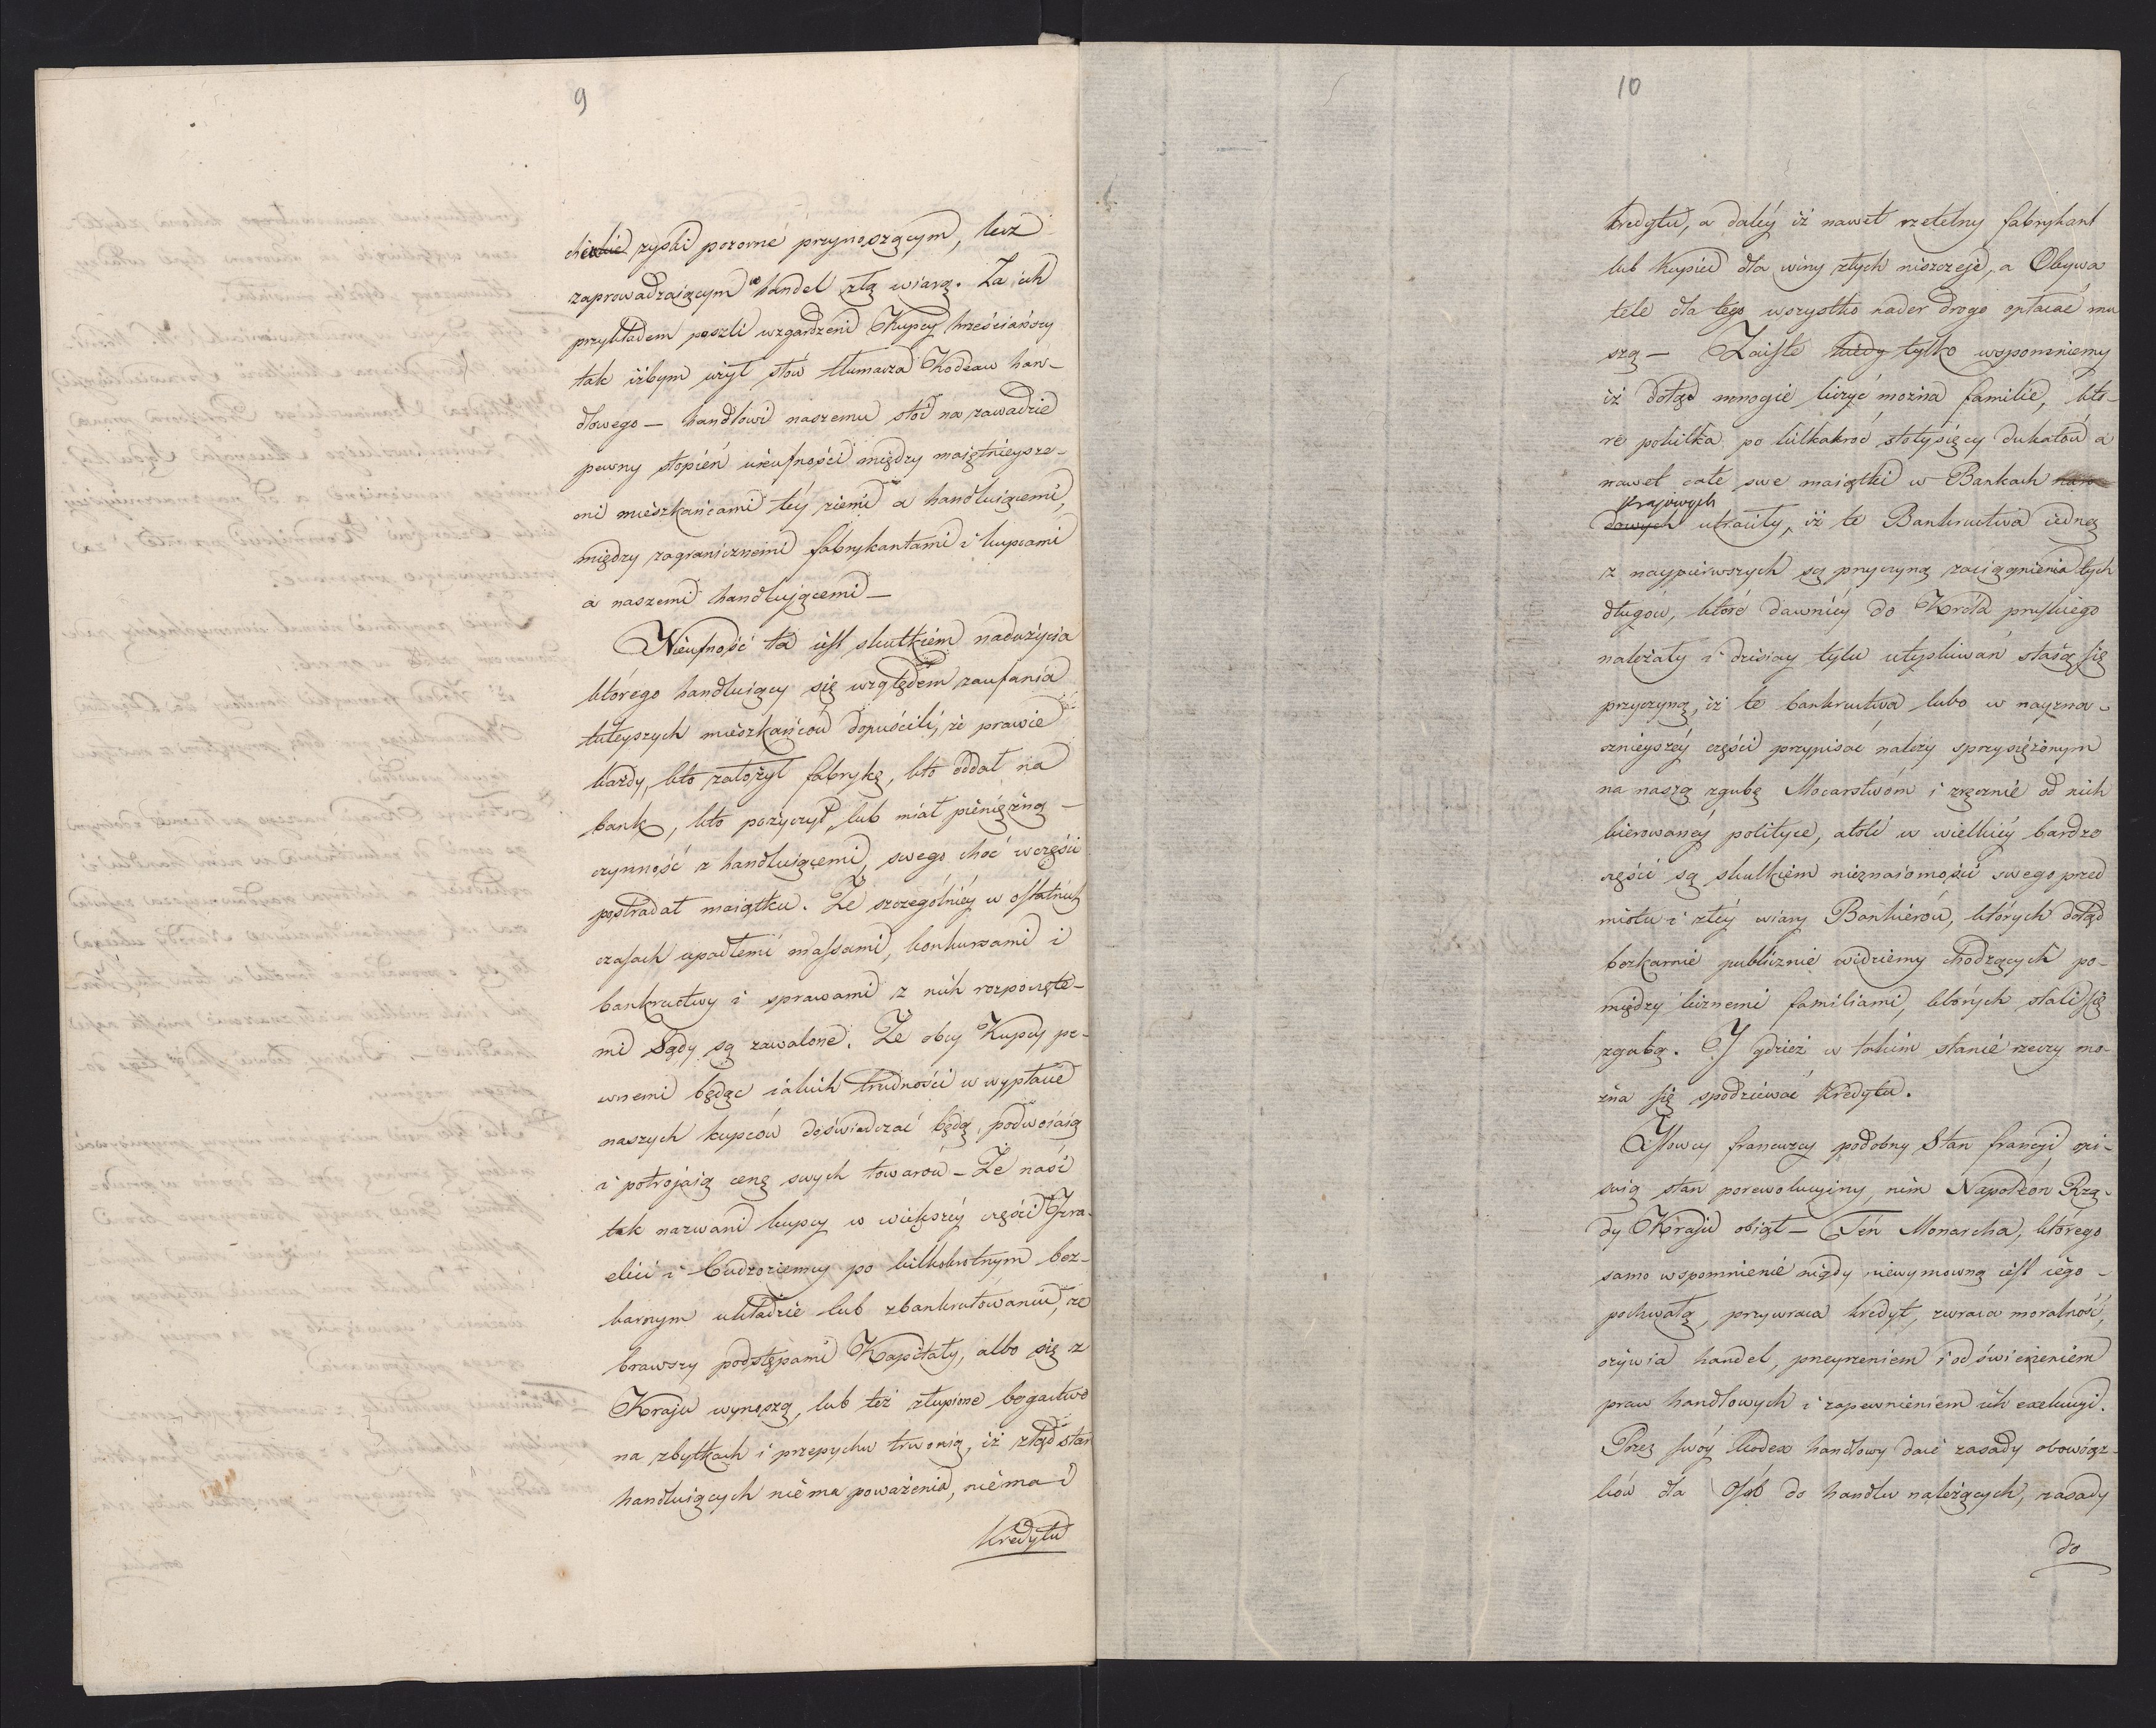 9
zyski pozorné przynoszącym, lecz
zaprowadzaiącym w handel złą wiarę. Za ich
przykładem poszli wzgardzeni Kupcy hrześciańscy
tak iżbym użył słów tłumacza Kodeau han-
dlowego — handlowi naszemu stoi na zawadzie
pewny stopień nieufności między maiętnieysze-
mi mieszkańcami téy ziemi a handluiącemi,
między zagranicznemi fabrykantami i kupcami
a naszemi handlującemi —
Nieufność ta iest skutkiem nadużycia
którego handluiący się względem zaufania
tuteyszych mieszkańców dopuścili, że prawie
każdy, kto założył fabrykę, kto oddał na
bank, kto pożyczył, lub miał pieniężną —
czynność z handluiącemi, swego choć w części
postradał maiątku. Że szczególniéy w ostatnich
czasach upadłemi massami, konkursami i
bankructwy i sprawami z nich rozpoczęte-
mi Sądy są zawalone. Że obcy Kupcy pe-
wnemi będąc iakich trudności w wypłacie
naszych kupców doświadczać będą, podwoiaią
i potrojaią cenę swych towarów — Że nasi
tak nazwani kupcy w większéy części Izra-
elici i Cudzoziemcy po kilkokrotnym bez-
karnym układzie lub zbankrutowaniu, ze
brawszy podstępami Kapitały, albo się z
Kraju wynoszą, lub też złupione bogactwo
na zbytkach i przepychu trwonią, iż ztąd stan
handluiących niéma poważenia, niéma i
Kredytu
10
kredytu, a daléy iż nawet rzetelny fabrykant
lub Kupiec dla winy złych niszczeje, a Obywa
tele dla tego wszystko nader drogo opłacać mu
szą — Zaiste kiedy tylko wspomniemy
iż dotąd mnogie liczyć można familie, któ-
re pokilka po kilkakroć stotysięcy dukatów a
nawet całe swe maiątki w Bankach naro
krajowych
dowych utraciły, iż te Bankructwa iedną
z naypierwszych są przyczyną zaciągnienia tych
długów, któré dawniéy do Króla pruskiego
należały i dzisiay tylu utyskiwań staią się
przyczyną, iż te bankructwa lubo w nayzna-
cznieyszéy części przypisać należy sprzysiężonym
na naszą zgubę Mocarstwóm i zręcznie od nich
kierowanéy polityce, atoli w wielkiéy bardzo
części są skutkiem nieznaiomości swego przed
miotu i złéy wiary Bankierów, których dotąd
bezkarnie publicznie widziemy chodzących po-
między licznemi familiami, których stali się
zgubą. I gdzież w takim stanie rzeczy mo-
żna się spodziewać Kredytu.
Istowcy francuzcy podobny Stan francyi opi-
suią stan porewolucyiny, nim Napoleon Rzą-
dy Kraju obiął — Ten Monarcha, którego
samo wspomnienie nigdy niewymowną iest iego —
pochwałą, przywraca kredyt, zwraca moralność,
ożywia handel, przeyrzeniem i odświeżeniem
praw handlowych i zapewnieniem ich exekucyi.
Przez swóy Kodex handlowy daie zasady obowiąz-
ków dla Osób do handlu należących, zasady
do